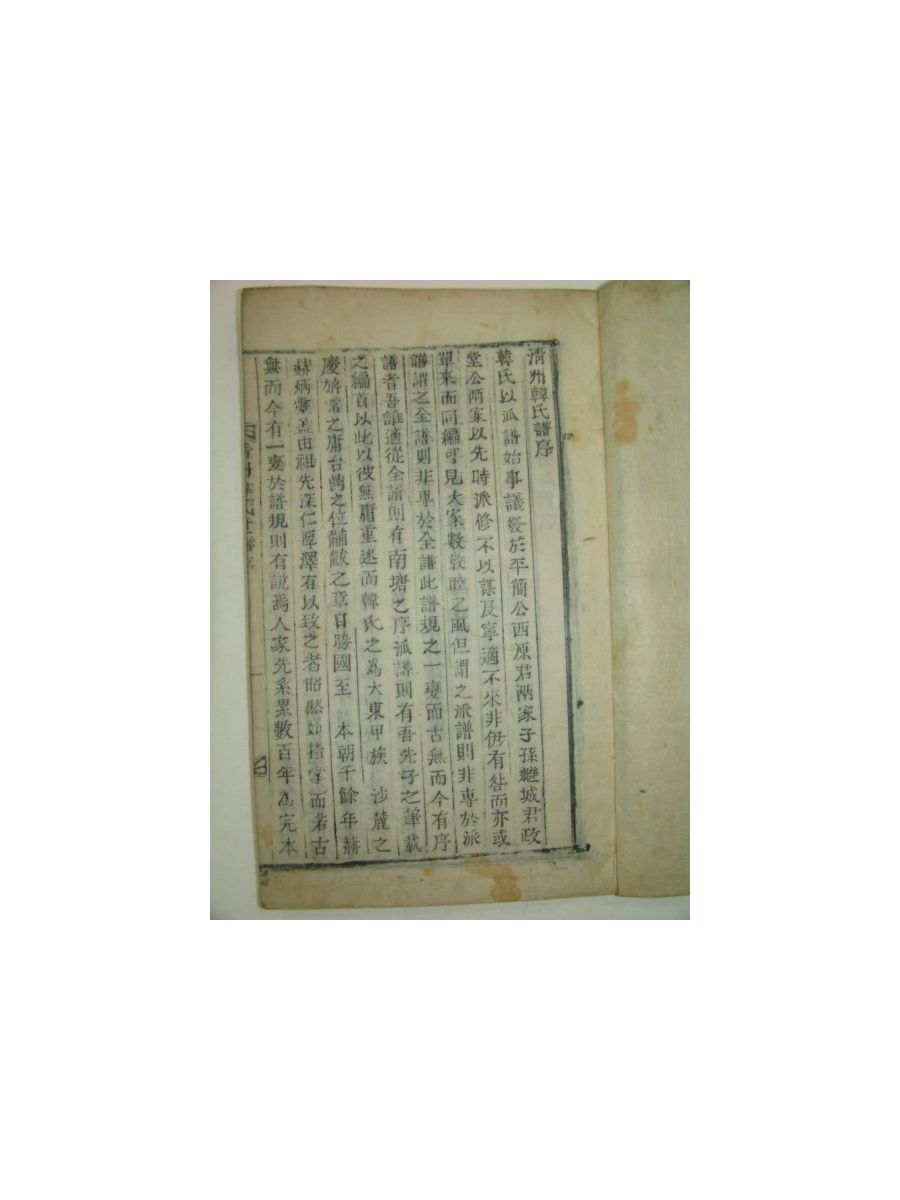 清州韓氏譜序
韓氏以派譜始事議發於平簡公西原君兩家子孫繼城君政
堂公兩家以先時派修不以謀及寧適不來非伊有咎而亦或
單來而同編可見大家數敦睦之風但謂之派譜則非専於派
譜謂之全譜則非専於全譜此譜規之一變而古無而今有序
譜者吾誰適從全譜則有南塘之序派譜則有吾先子之筆載
之編首以此以彼無庸重述而韓氏之為大東甲族 沙麓之
慶旂常之庸台鼎之位黼黻之章自勝國至 本朝千餘年赫
赫炳靈盖由祖先深仁厚澤有以致之者昭然如指掌而若古
無而今有一變於譜規則有說焉人家先系累數百年為完本